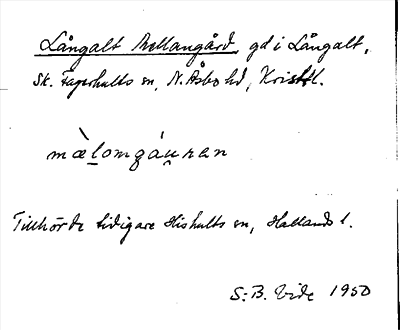 Långalt Mellangård, gd i Långalt,
Sk. Fagerhults sn, N. Åsbo hd, Kristl.
mæ̀lomgáu̯ren
Tillhörde tidigare Hishults sn, Hallands l.
S: B. Vide 1950